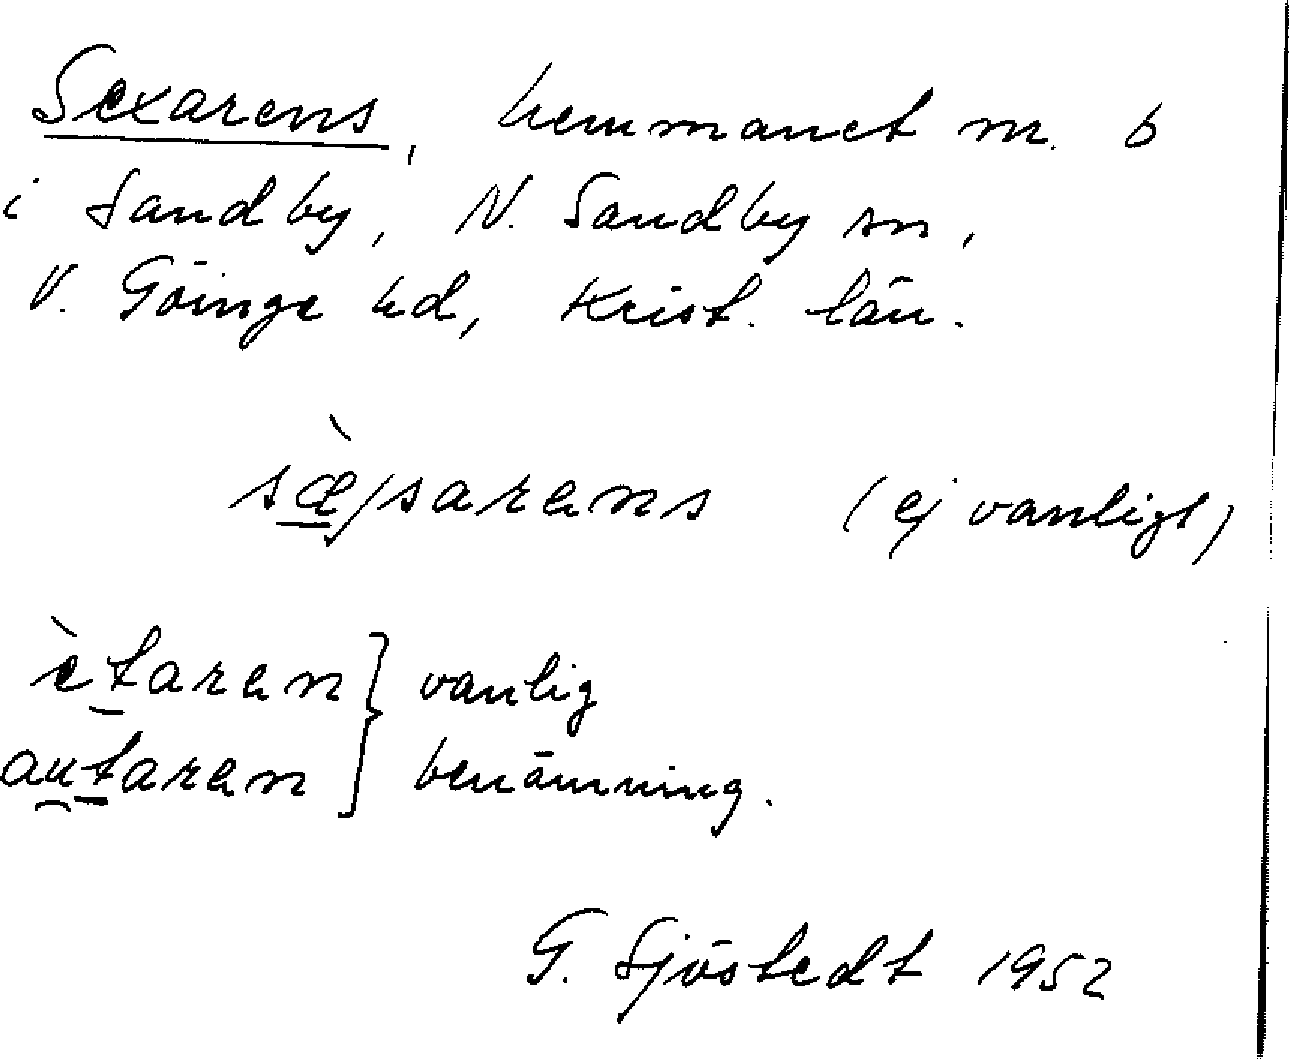 Sexarens, hemmanet nr. 6
i Sandby, N. Sandby sn,
V. Göinge hd, Krist. län.
sæ̀ssarens (ej vanligt)
ètaren } vanlig
autaren } benämning.
G. Sjöstedt 1952